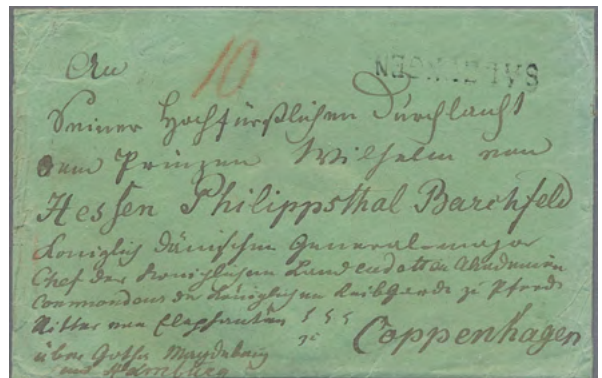 An 10 SALZUNGEN
Seiner Hochfürstlichen Durchlaucht
dem Prinzen Wilhelm von
Hessen Philippsthal Barchfeld
Königlich Dänischen General-major
Chef der Königlichen Landcadetten Akademie
Commandeur der Königlichen Leibgarde zu Pferde
Ritter von Elephanten
zu Coppenhagen
über Gotha Magdeburg
und Hamburg